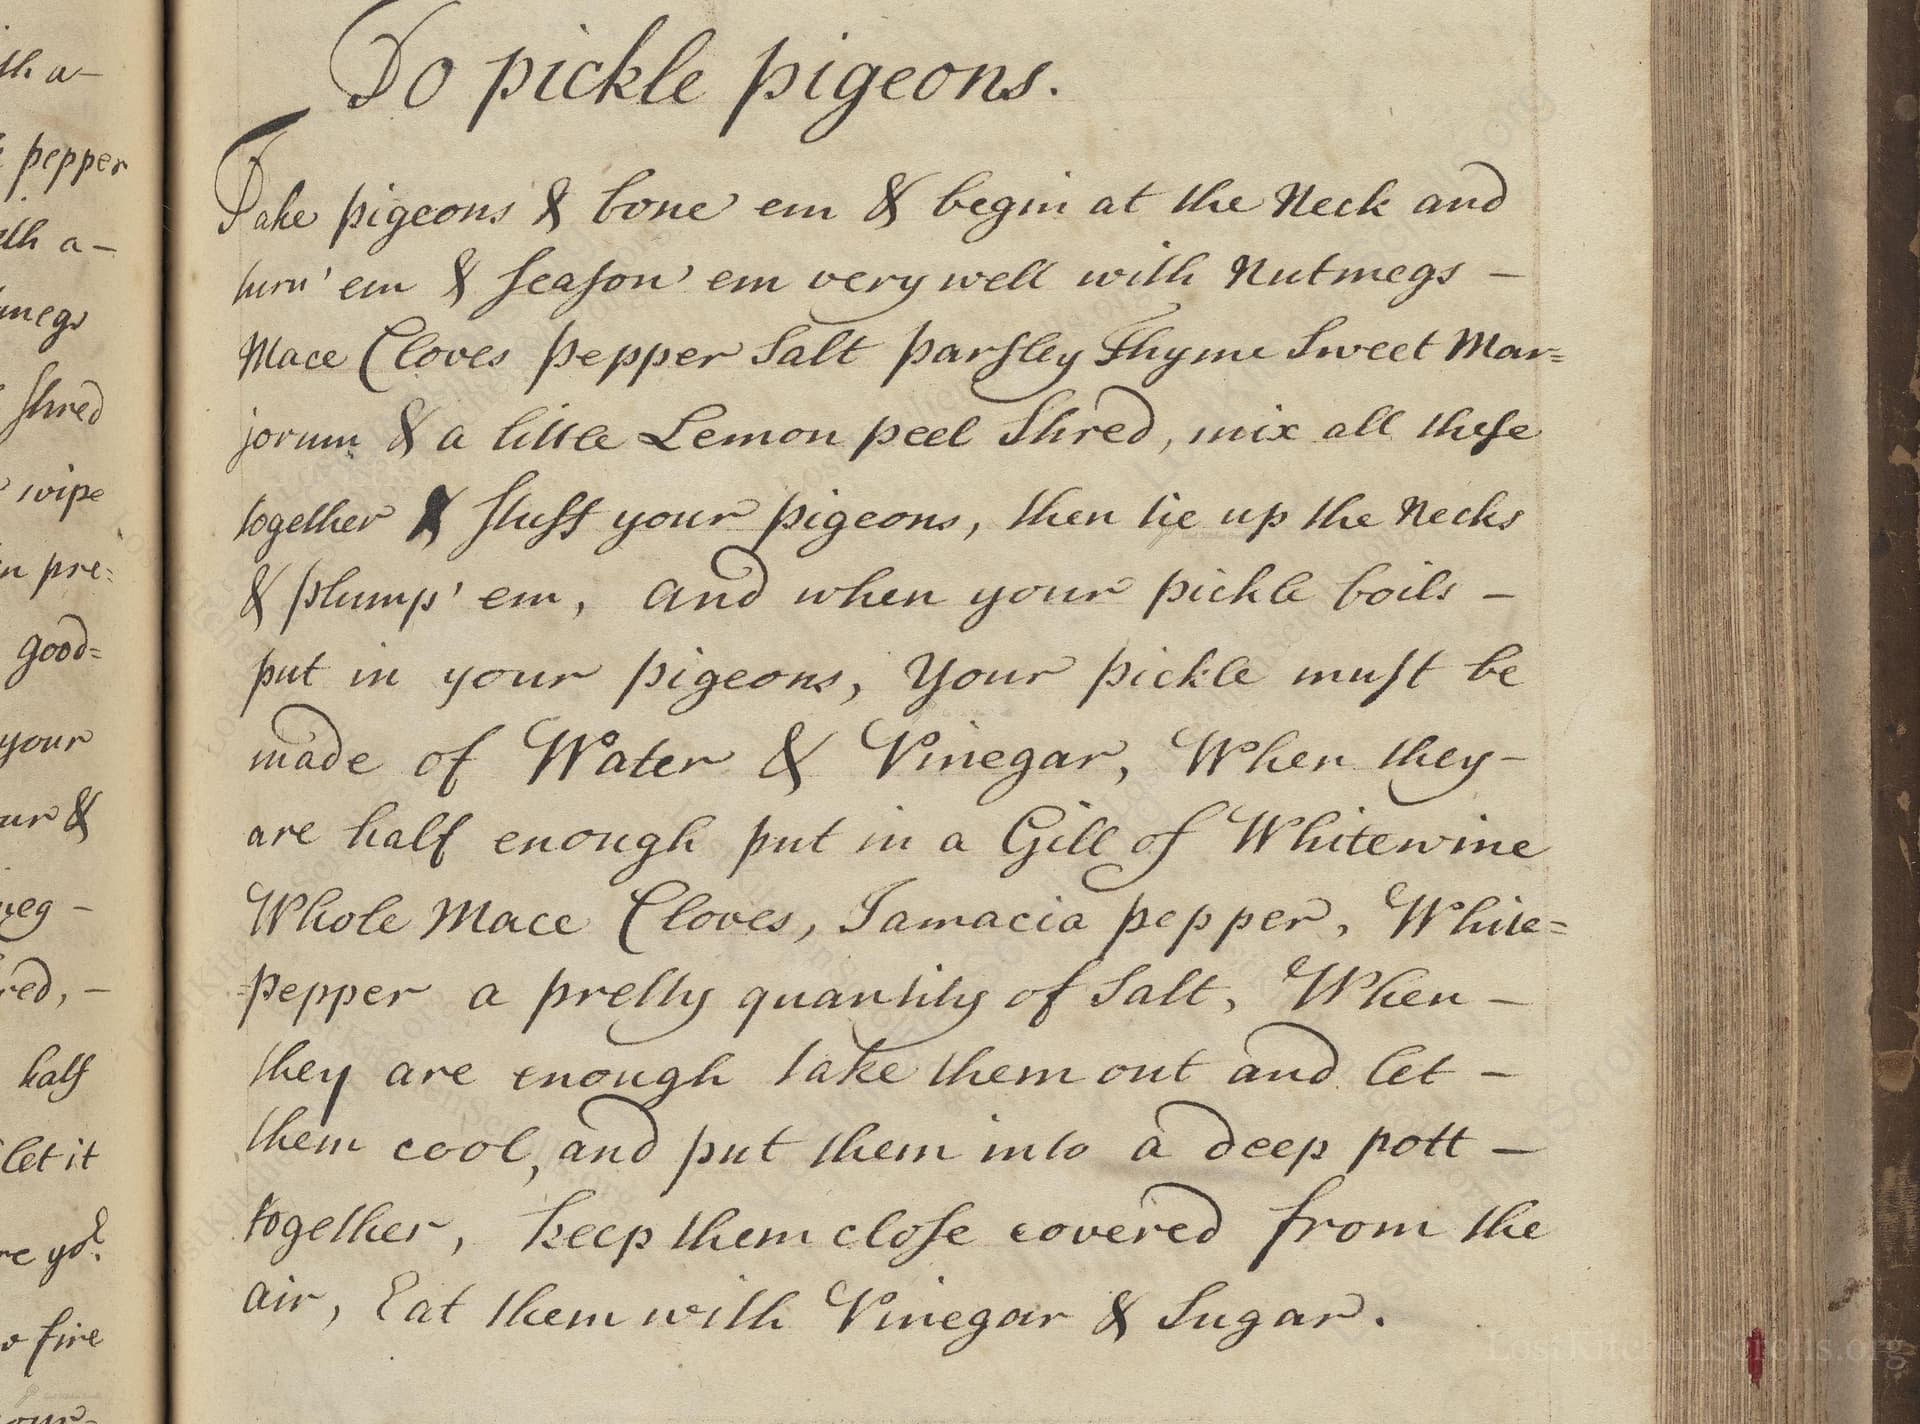 To pickle pigeons.
Take pigeons & bone em & begin at the Neck and
turn' em & season' em very well with Nutmegs –
Mace Cloves pepper Salt parsley Thyme Sweet Mar=
jorum & a little Lemon peel Shred, mix all these
together & stuff your pigeons, then tie up the Necks
& plump' em, and when your pickle boils –
put in your pigeons, Your pickle must be
made of Water & Vinegar, When they –
are half enough put in a Gill of Whitewine
Whole Mace Cloves, Jamacia pepper, White=
=pepper a pretty quantity of Salt, When –
they are enough take them out and let –
them cool, and put them into a deep pott –
together, keep them close covered from the
air, Eat them with Vinegar & Sugar.
th a –
pepper
th a –
megs
shred
wipe
pre=
good=
your
&
meg –
red, –
half
let it
fire
LostKitchenScrolls.org